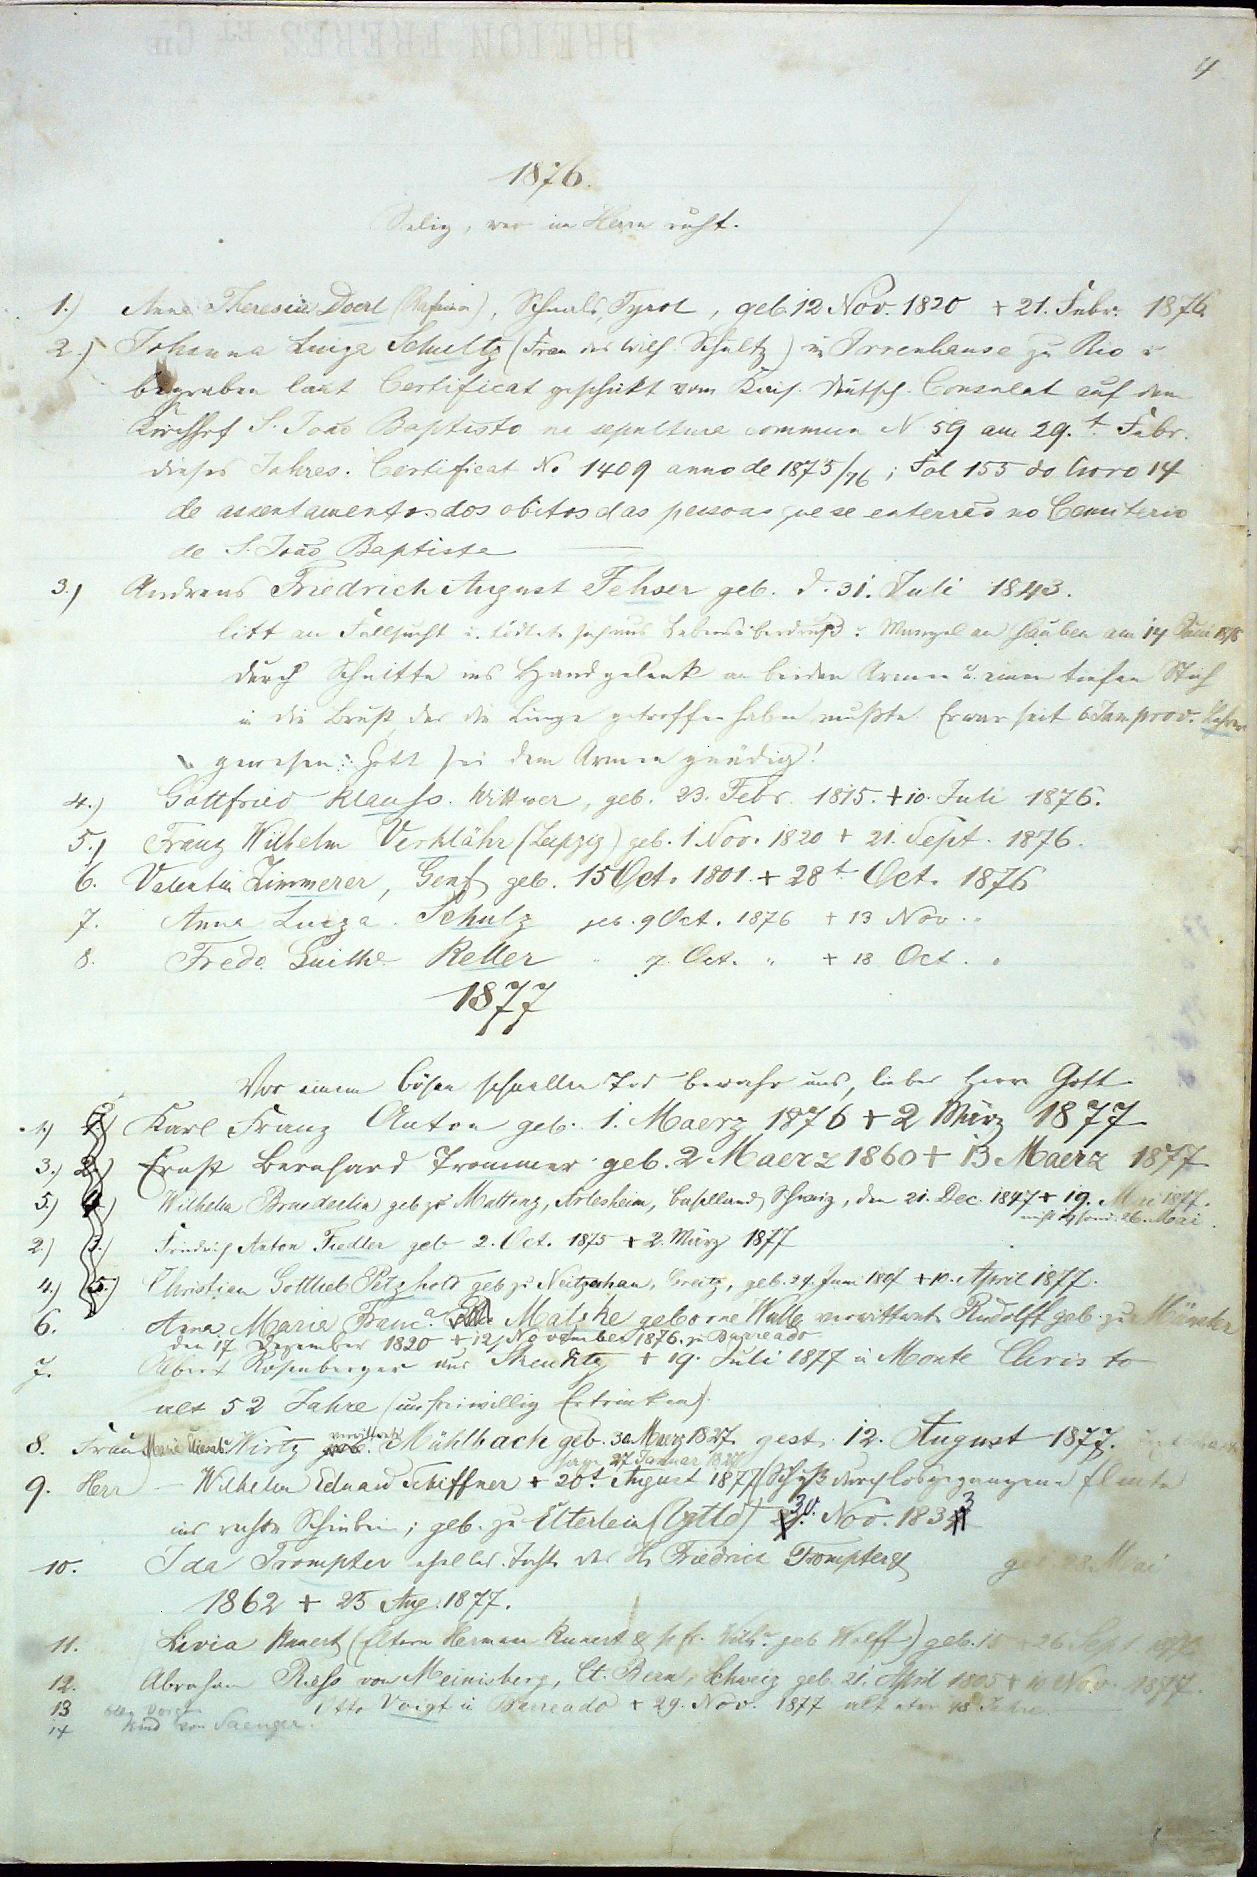 4
1876.
Selig, wer im Herrn ruht.
1.) Anna Theresia Doerl, Schnals, Tyrol, geb. 12 Nov. 1820 + 21. Febr. 1876
2.) Johanna Luiza Schultz (Frau des Wilh. Schultz) im Irrenhause zu Rio u
begraben laut Certificat geschikt vom Kais. Deutsch. Consulat auf dem
Kirchhof S. João Baptisto na sepulture commun N 59 am 29.t Febr.
dieses Jahres. Certificat No 1409 anno de 1875/76; Fol 155 do livro 14
de assentamentos dos obitos das pessoas que se enterrão no Cemiterio
de S. João Baptista
3.) Andreas Friedrich August Fehser geb. d. 31. Juli 1843.
litt an Fallsucht u. tödtete sich aus Lebensüberdruß u. Mangel an Glauben am 14 Juni 1876
durch Schnitte ins Handgelenk an beiden Armen u. einen tiefen Stich
in die Brust, der die Lunge getroffen haben mußte. Er war seit 6 Jam prov. Lehrer
gewesen. Gott sei dem Armen gnädig!
4.) Gottfried Klauss. Wittwer, geb. 23. Febr. 1815. + 10. Juli 1876.
5.) Franz Wilhelm Verklähr (Leipzig) geb. 1 Nov. 1820 + 21. Sept. 1876.
6. Valentin Zimmerer, Genf, geb. 15 Oct. 1801. + 28t Oct. 1876
7. Anna Luiza. Schulz geb. 9 Oct. 1876 + 13 Nov. "
8. Fredo Keller " 7. Oct. " + 18 Oct. "
1877
Vor einem bösen schnellen Tod bewahr uns, lieber Herr Gott
1.) Karl Franz Anton geb. 1. Maerz 1876 + 2 März 1877
3.) 2.) Ernst Bernhard Trommer geb. 2 Maerz 1860 + 13 Maerz 1877
5.) 4.) Wilhelm Bruederlin geb zu Muttenz, Arlesheim, Baselland, Schweiz, den 21. Dec. 1847 + 19. Mai 1877.
26. Mai
2.) 3.) Friedrich Anton Fiedler geb 2. Oct. 1875 + 2. März 1877
4.) 5.) Christian Gottlieb Petzhold geb zu Neitzschau, Greitz, geb. 24. Juni 1807 + 10. April 1877.
6. Anna Maria Franc.a Matzke geborne Wulle verwittwet Rudolff geb. zu Münster
den 17 Dezember 1820 + 12 November 1876. zu Barreado
7. Albert Rosenberger aus + 19. Juli 1877 in Monte Christo
alt 52 Jahre (unfreiwillig Ertrinken).
8. Frau Wirtz verwittwete Mühlbach geb. 30. Maerz 1827 gest. 12. August 1877.
27 Januar
9. Herr Wilhelm Eduard Schiffner + 20t August 1877 (Schuß durch losgegangene Flinte
ins rechte Schienbein; geb. zu Elterlein 30. Nov. 1833
10. Ida Trompter ehel. led. Tochter des H. Friedrich Trompter geb 28. Mai
1862 + 25 Aug. 1877.
11. Livia Kunert (Eltern Herman Kunert & s. Fr. geb Wolff) geb. 15 + 26 Sept
12. Abraham Riess von Meinisberg, Ct. Bern, Schweiz geb. 21. April 1805 + 10 Nov. 1877
13 Otto Voigt in Barreado + 29. Nov. 1877 alt etwa 48 Jahre.
14 Kind von Saenger.